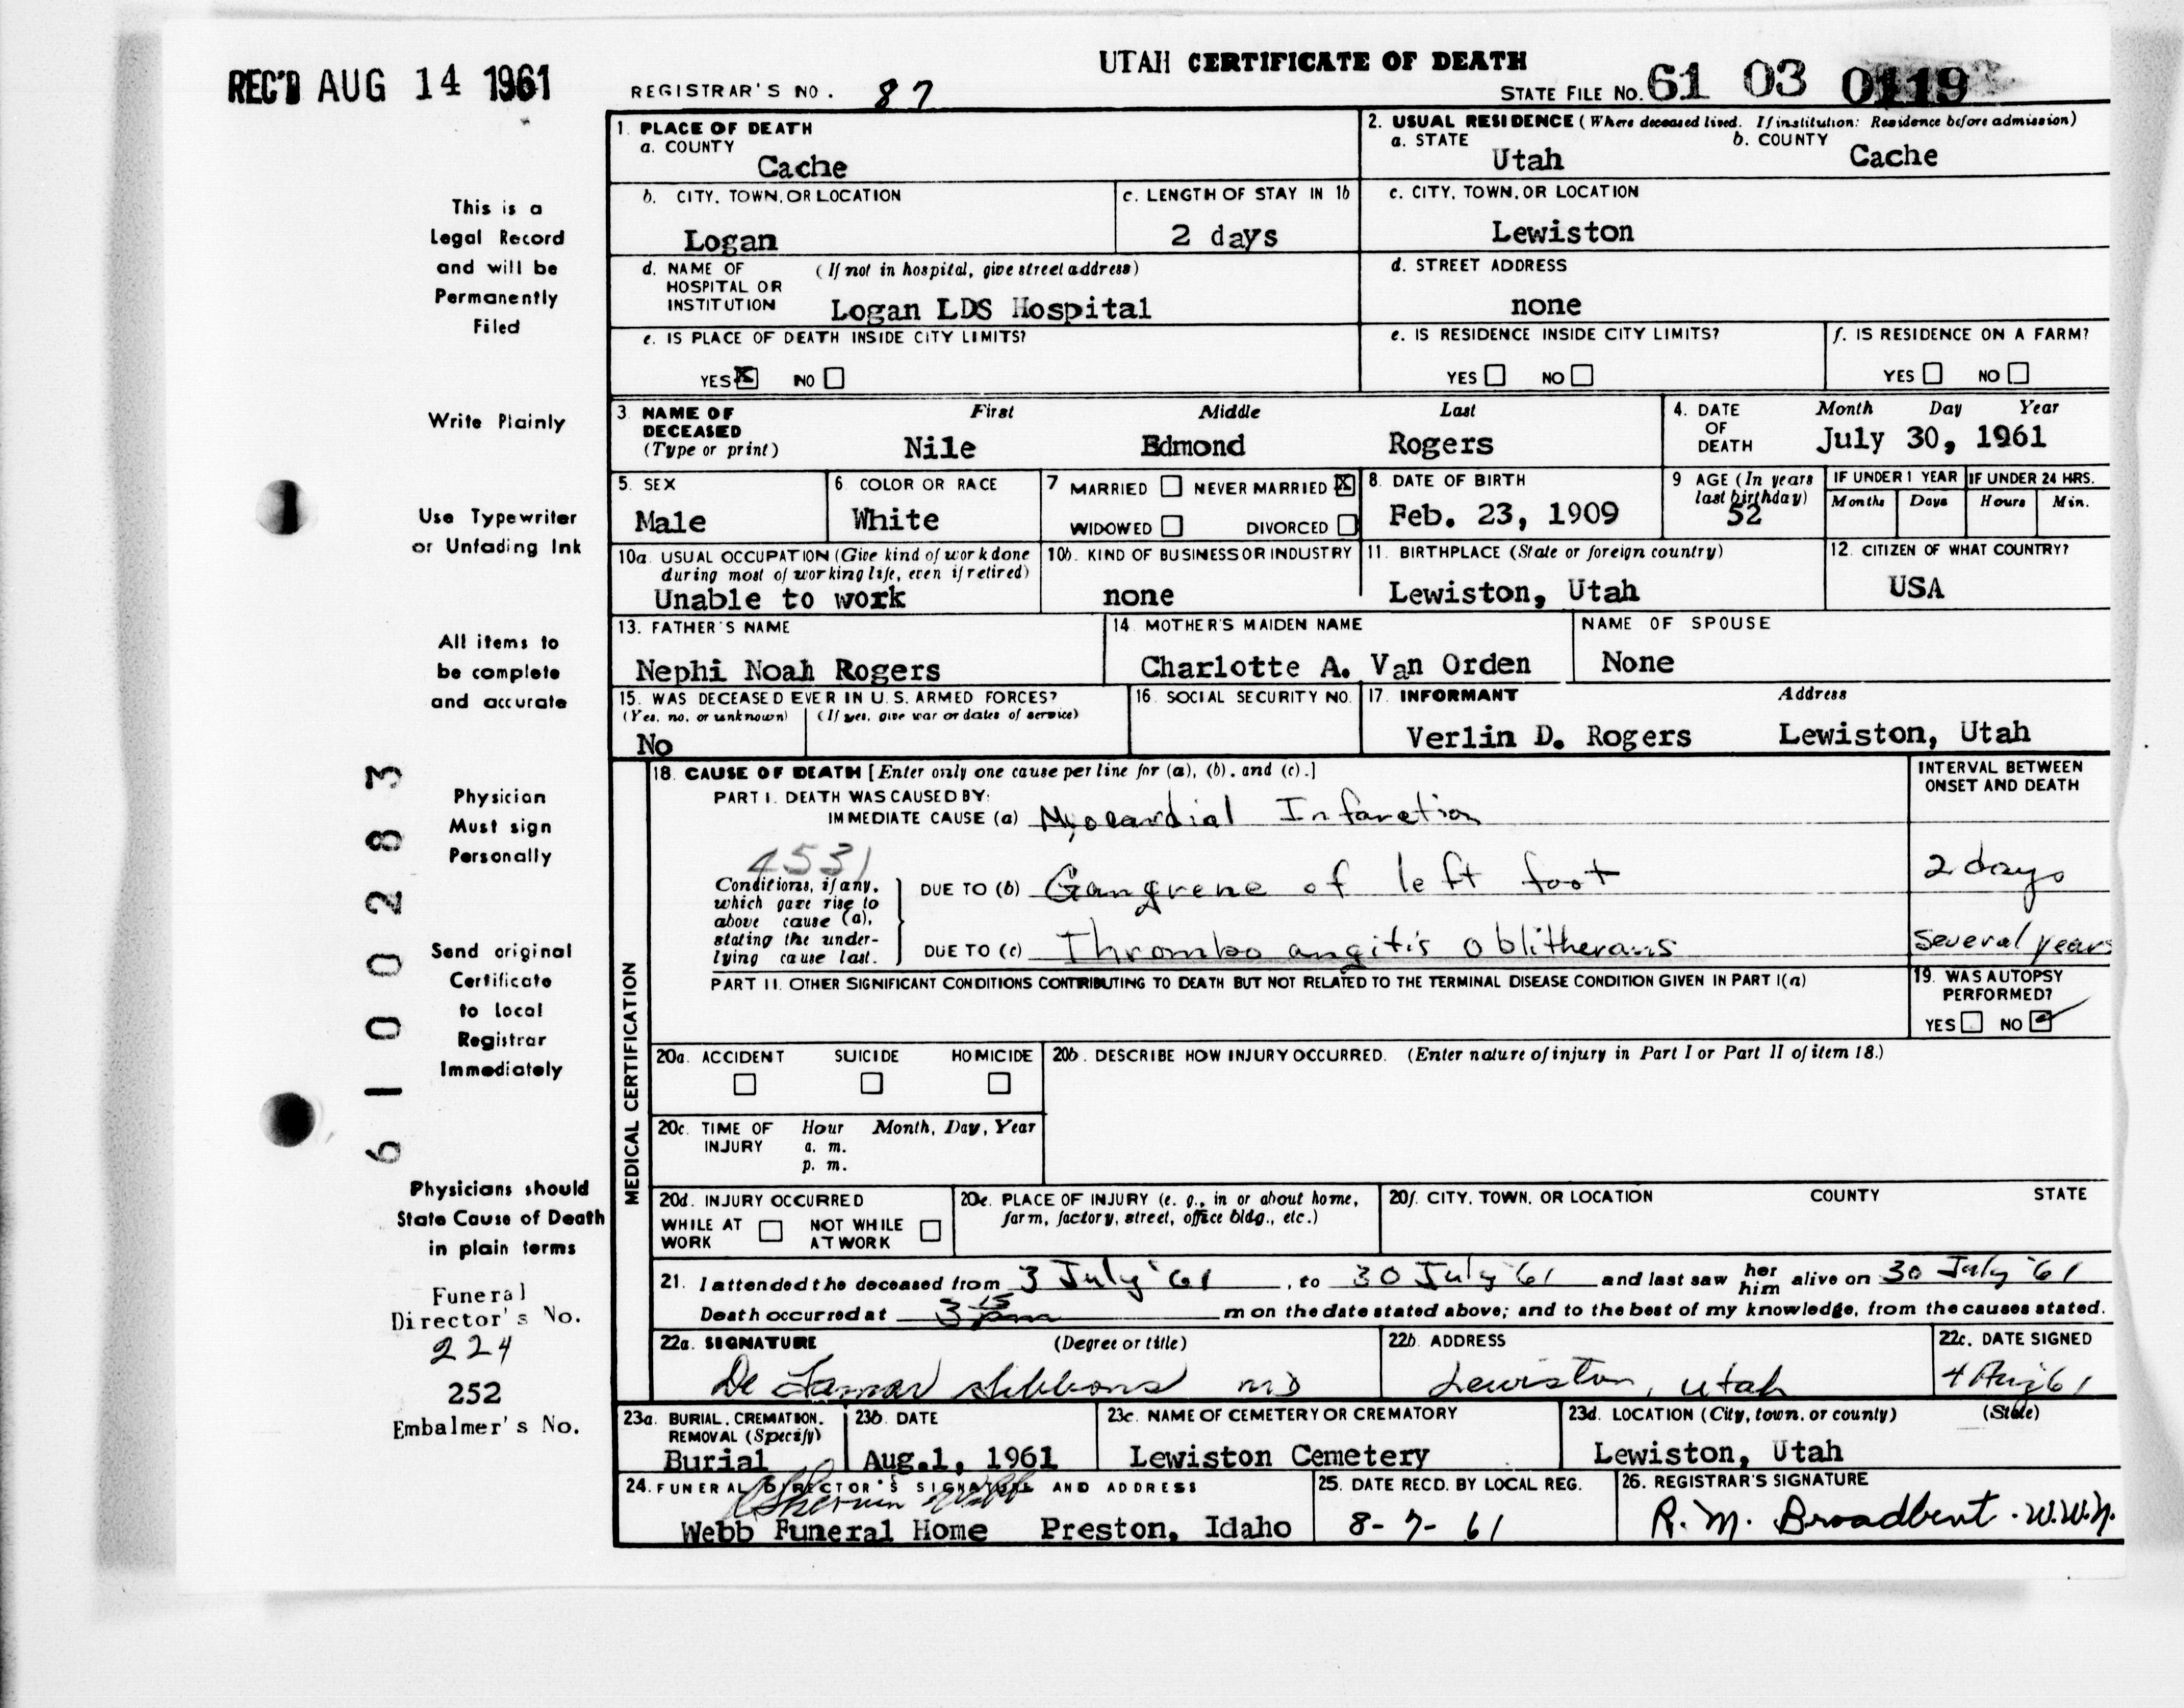 UTAH CERTIFICATE OF DEATH
REC'D AUG 14 1961
REGISTRAR'S NO. 87
STATE FILE NO. 61 03 0119
1. PLACE OF DEATH
a. COUNTY
Cache
2. USUAL RESIDENCE (Where deceased lived. If institution: Residence before admission)
a. STATE
Utah
b. COUNTY
Cache
b. CITY, TOWN, OR LOCATION
Logan
c. LENGTH OF STAY IN 1b
2 days
c. CITY, TOWN, OR LOCATION
Lewiston
d. NAME OF HOSPITAL OR INSTITUTION
(If not in hospital, give street address)
Logan LDS Hospital
d. STREET ADDRESS
none
e. IS PLACE OF DEATH INSIDE CITY LIMITS?
YES X NO
e. IS RESIDENCE INSIDE CITY LIMITS?
YES NO
f. IS RESIDENCE ON A FARM?
YES NO
3 NAME OF DECEASED
(Type or print)
First Middle Last
Nile Edmond Rogers
4. DATE OF DEATH
Month Day Year
July 30, 1961
5. SEX
Male
6. COLOR OR RACE
White
7 MARRIED NEVER MARRIED X
WIDOWED DIVORCED
8. DATE OF BIRTH
Feb. 23, 1909
9 AGE (In years last birthday)
52
IF UNDER 1 YEAR
Months Days
IF UNDER 24 HRS.
Hours Min.
10a. USUAL OCCUPATION (Give kind of work done during most of working life, even if retired)
Unable to work
10b. KIND OF BUSINESS OR INDUSTRY
none
11. BIRTHPLACE (State or foreign country)
Lewiston, Utah
12. CITIZEN OF WHAT COUNTRY?
USA
13. FATHER'S NAME
Nephi Noah Rogers
14. MOTHER'S MAIDEN NAME
Charlotte A. Van Orden
NAME OF SPOUSE
None
15. WAS DECEASED EVER IN U.S. ARMED FORCES?
(Yes, no, or unknown) (If yes, give war or dates of service)
No
16. SOCIAL SECURITY NO.
17. INFORMANT Address
Verlin D. Rogers Lewiston, Utah
MEDICAL CERTIFICATION
18. CAUSE OF DEATH [Enter only one cause per line for (a), (b), and (c).]
INTERVAL BETWEEN ONSET AND DEATH
PART I. DEATH WAS CAUSED BY:
IMMEDIATE CAUSE (a) Myocardial Infarction
4531
Conditions, if any, which gave rise to above cause (a), stating the underlying cause last.
DUE TO (b) Gangrene of left foot
2 days
DUE TO (c) Thrombo angitis Oblitherans
several years
PART II. OTHER SIGNIFICANT CONDITIONS CONTRIBUTING TO DEATH BUT NOT RELATED TO THE TERMINAL DISEASE CONDITION GIVEN IN PART I(a)
19. WAS AUTOPSY PERFORMED?
YES NO ✓
20a. ACCIDENT SUICIDE HOMICIDE
20b. DESCRIBE HOW INJURY OCCURRED. (Enter nature of injury in Part I or Part II of item 18.)
20c. TIME OF INJURY
Hour Month, Day, Year
a. m.
p. m.
20d. INJURY OCCURRED
WHILE AT WORK NOT WHILE AT WORK
20e. PLACE OF INJURY (e. g., in or about home, farm, factory, street, office bldg., etc.)
20f. CITY, TOWN, OR LOCATION COUNTY STATE
21. I attended the deceased from 3 July '61, to 30 July '61 and last saw her him alive on 30 July '61
Death occurred at 3 15 pm m on the date stated above; and to the best of my knowledge, from the causes stated.
22a. SIGNATURE (Degree or title)
De Lamar Gibbons MD
22b. ADDRESS
Lewiston, Utah
22c. DATE SIGNED
4 Aug 61
23a. BURIAL, CREMATION, REMOVAL (Specify)
Burial
23b. DATE
Aug.1, 1961
23c. NAME OF CEMETERY OR CREMATORY
Lewiston Cemetery
23d. LOCATION (City, town, or county) (State)
Lewiston, Utah
24. FUNERAL DIRECTOR'S SIGNATURE AND ADDRESS
Webb Funeral Home Preston, Idaho
25. DATE RECD. BY LOCAL REG.
8-7-61
26. REGISTRAR'S SIGNATURE
R. M. Broadbent - W.W.N.
This is a
Legal Record
and will be
Permanently
Filed
Write Plainly
Use Typewriter
or Unfading Ink
All items to
be complete
and accurate
Physician
Must sign
Personally
Send original
Certificate
to Local
Registrar
Immediately
Physicians should
State Cause of Death
in plain terms
Funeral
Director's No.
224
252
Embalmer's No.
61000283